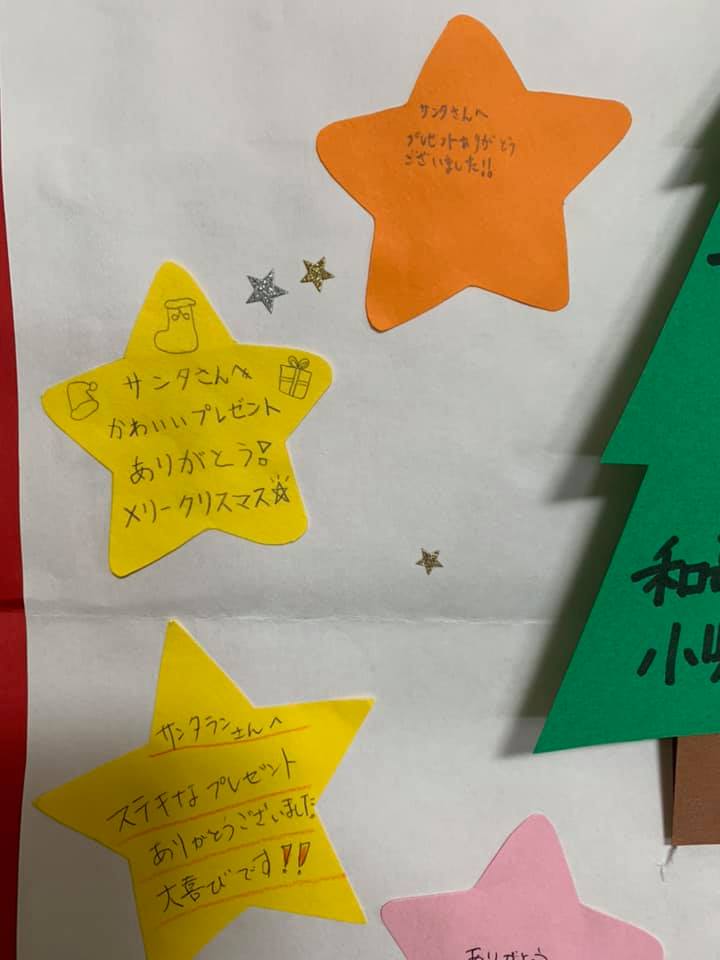 サンタさんへ
プレゼントありがとう
ございました!!
サンタさんへ
かわいいプレゼント
ありがとう!
メリークリスマス☆
サンタランさんへ
ステキなプレゼント
ありがとうございました
大喜びです!!
ありがとう
和
小